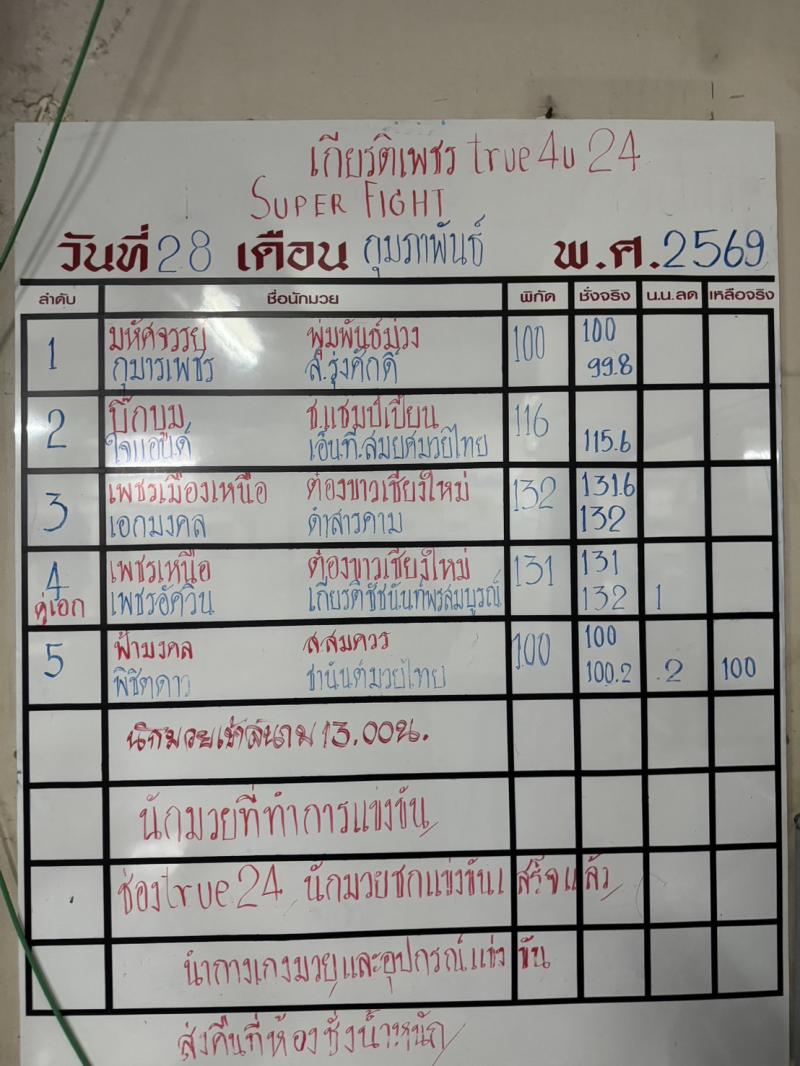 เกียรติเพชร true4u 24
SUPER FIGHT
วันที่ 28 เดือน กุมภาพันธ์ พ.ศ. 2569
ลำดับ ชื่อนักมวย พิกัด ชั่งจริง น.น.ลด เหลือจริง
1 มหัศจรรย์ พุ่มพันธ์ม่วง 100 100
กุมารเพชร ส.รุ่งศักดิ์ 99.8
2 บิ๊กบูม ช.แชมป์เปี้ยน 116
ใจแอนด์ เอ็นที.สมยศมวยไทย 115.6
3 เพชรเมืองเหนือ ต๋องขาวเชียงใหม่ 132 131.6
เอกมงคล ดำสารคาม 132
4 เพชรเหนือ ต๋องขาวเชียงใหม่ 131 131
คู่เอก เพชรอัศวิน เกียรติชัชนันท์พรสมบูรณ์ 132 1
5 ฟ้ามงคล ส.สมควร 100 100
พิชิตดาว ชานันต์มวยไทย 100.2 .2 100
นักมวยเข้าสนาม 13.00น.
นักมวยที่ทำการแข่งขัน
ช่อง true24 นักมวยชกแข่งขันเสร็จแล้ว
นำกางเกงมวยและอุปกรณ์แข่งขัน
ส่งคืนที่ห้องชั่งน้ำหนัก